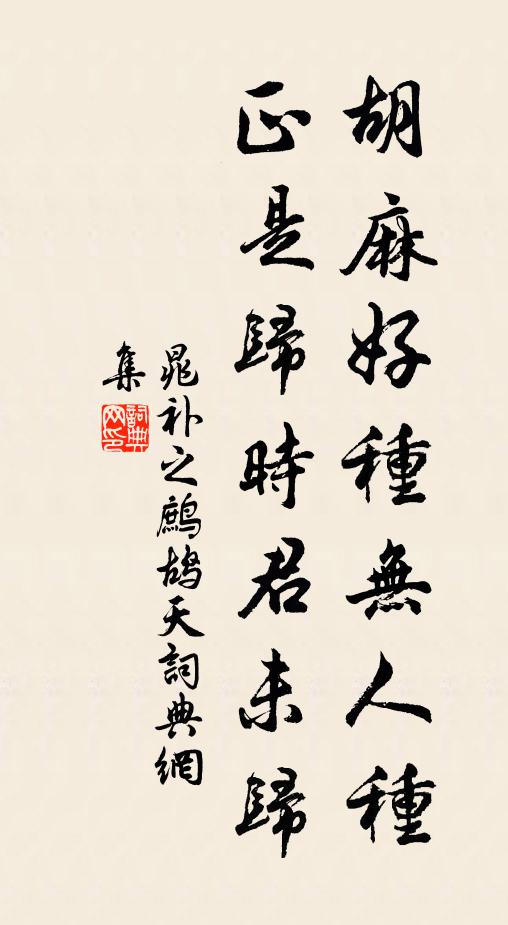 胡麻好種無人種
正是歸時君未歸
晁补之鷓鴣天詞典網
集
詞典网印